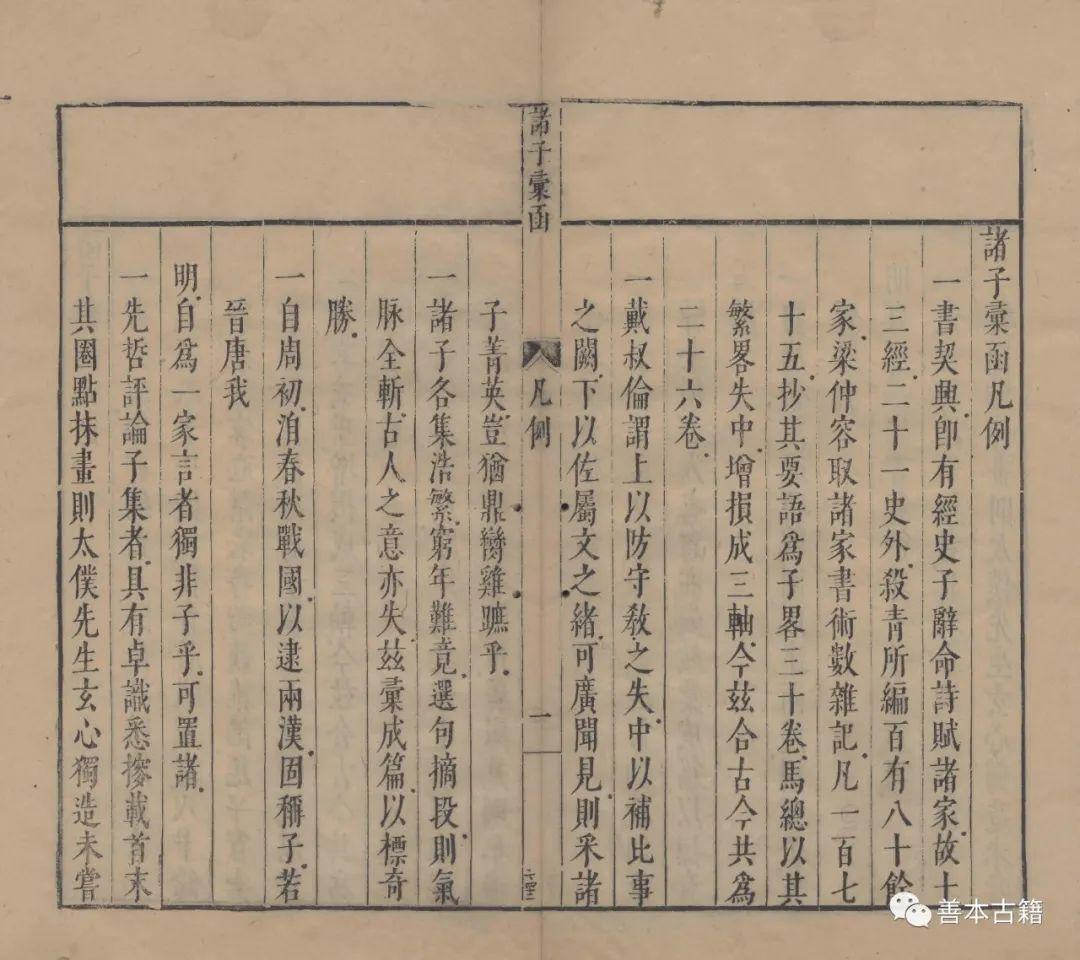 諸子彙函凡例
一書契興卽有經史子辭命詩賦諸家故十
三經二十一史外殺青所編百有八十餘
家梁仲容取諸家書術數雜記凡一百七
十五抄其要語爲子畧三十卷馬總以其
繁畧失中增損成三軸今玆合古今共爲
二十六卷
一戴叔倫謂上以防守敎之失中以補比事
之闕下以佐屬文之緒可廣聞見則采諸
諸子彙函
凡例
一
子菁英豈猶鼎臠雞蹠乎
一諸子各集浩繁窮年難竟選句摘段則氣
脉全斬古人之意亦失玆彙成篇以標奇
勝
一自周初洎春秋戰國以逮兩漢固稱子若
晉唐我
明自爲一家言者獨非子乎可置諸
一先哲評論子集者具有卓識悉擦載首末
其圈點抹畫則太僕先生玄心獨造未嘗
善本古籍